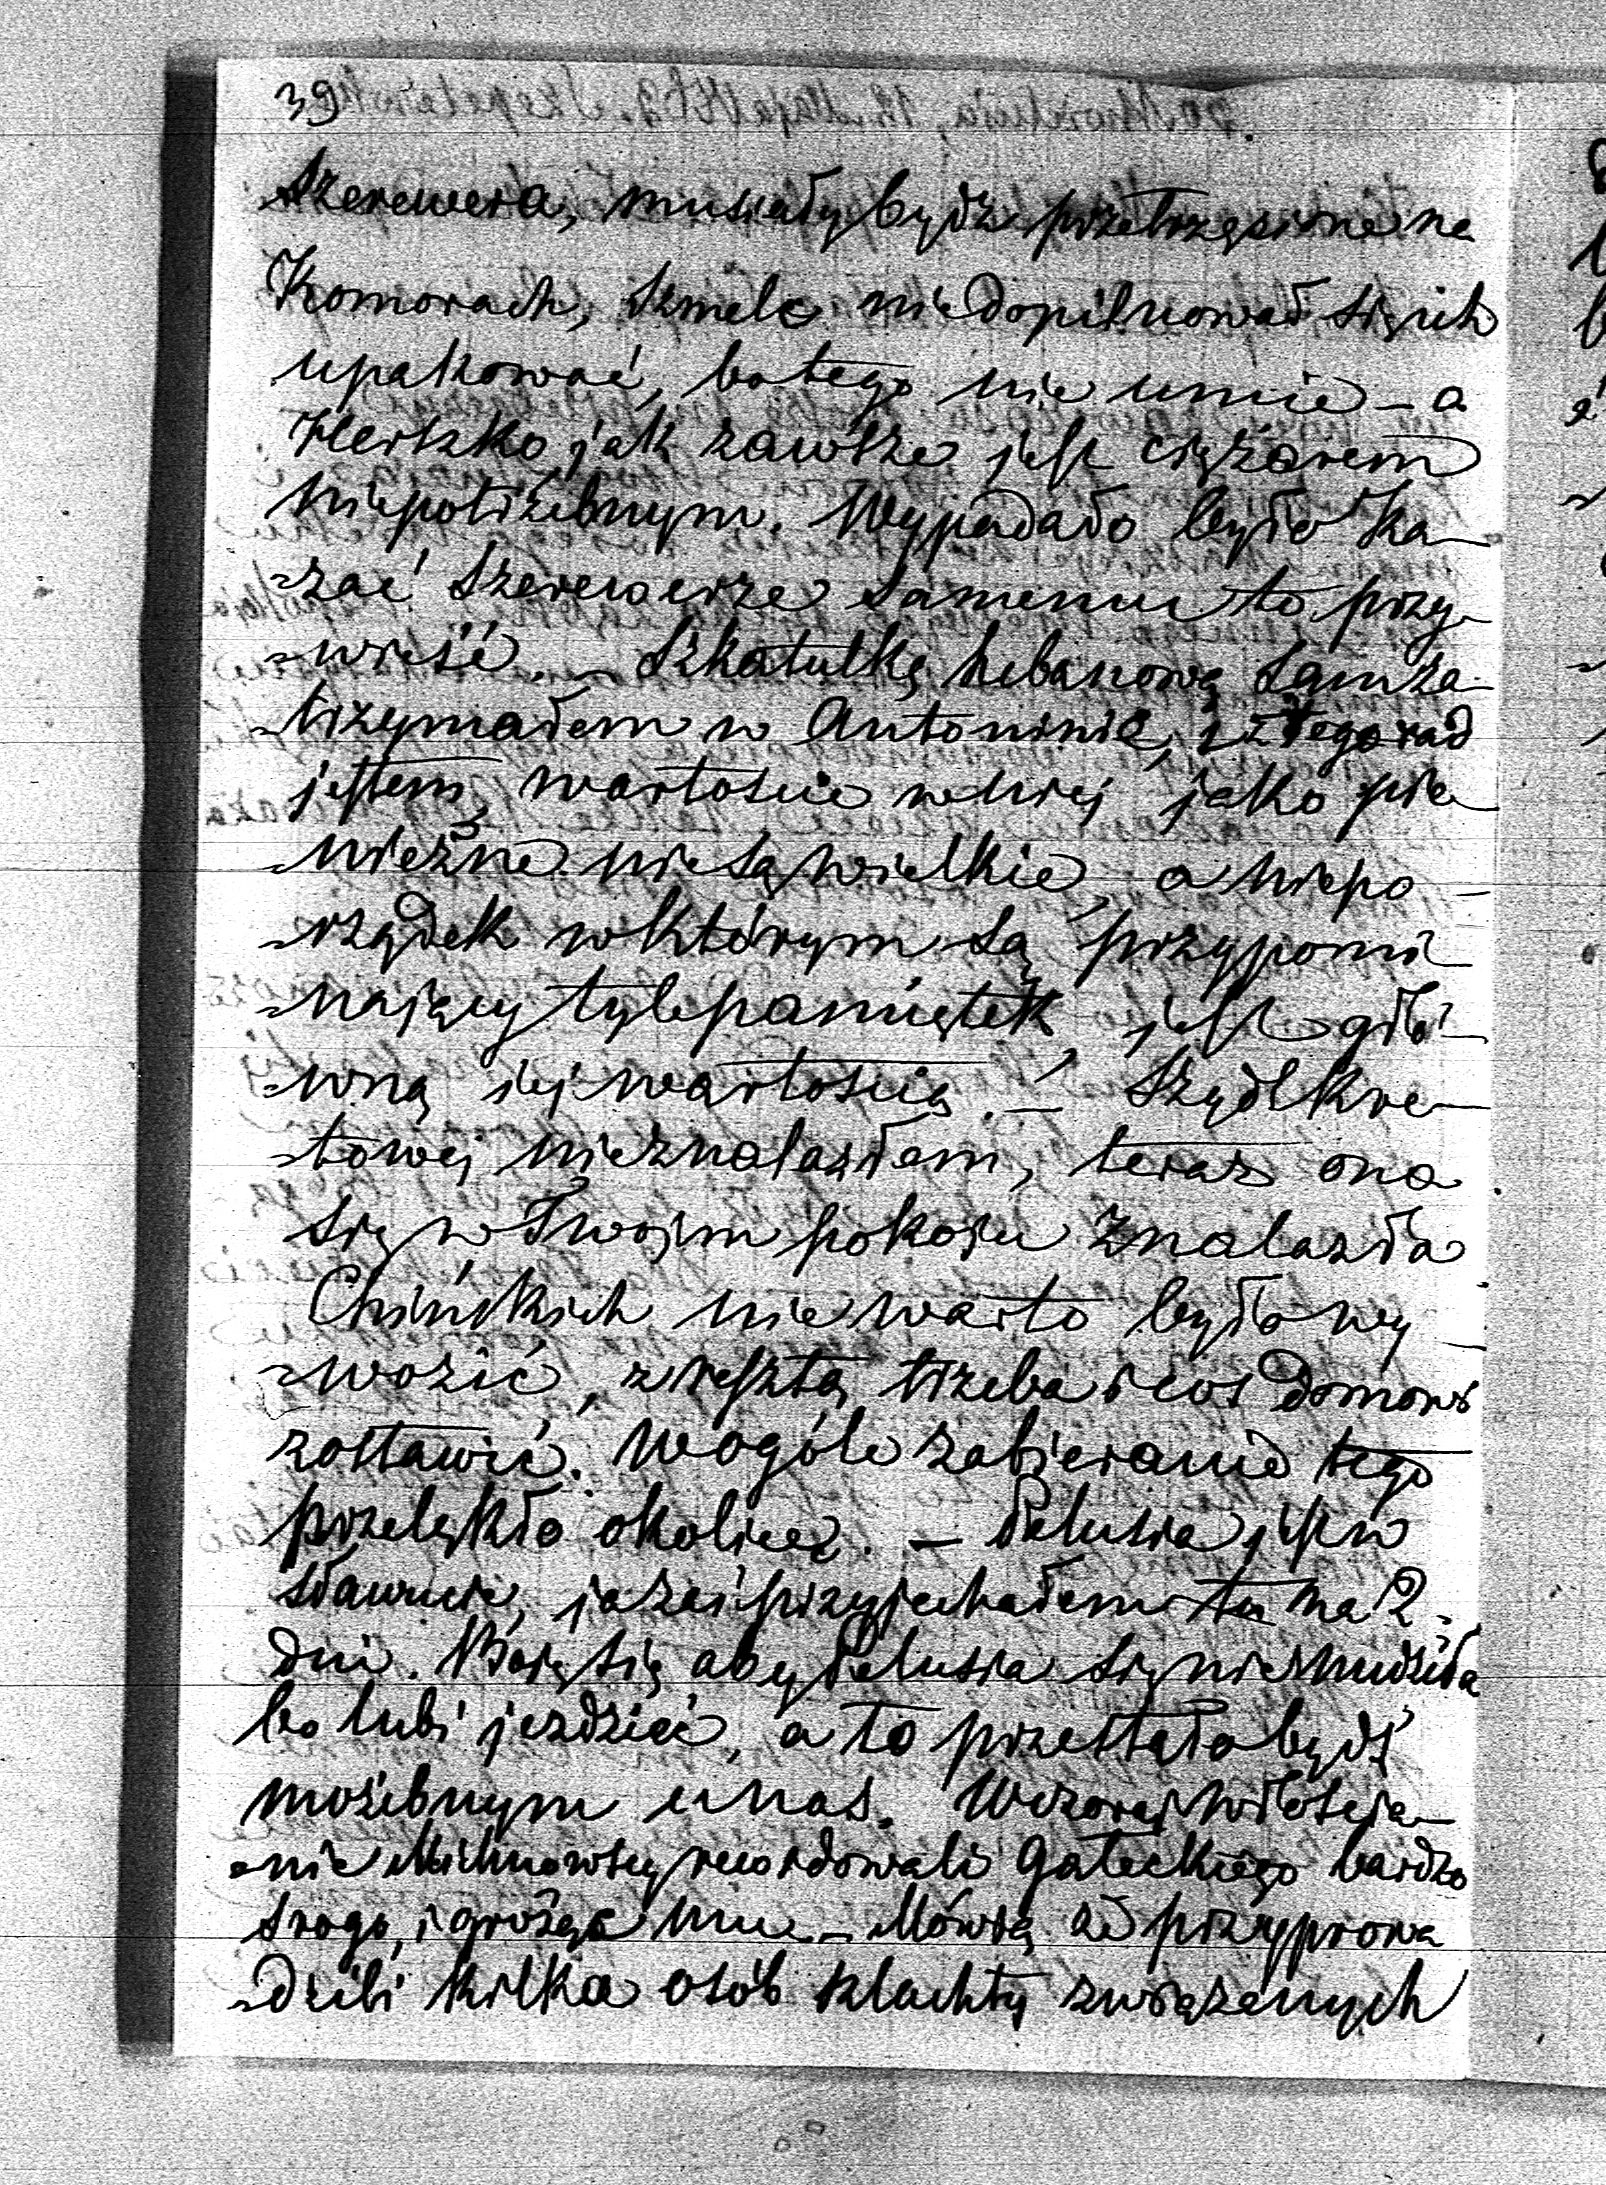 39
Szerewera, musiały bydz przetrzęsione na
Komorach, Szmelc niedopilnował się ich
upakować, bo tego nie umie – a
Herszko, jak zawsze jest ciężarem
niepotrzebnym. Wypadało było ka-
-zać Szerewerze samemu to przy-
-wieść. – Szkatułkę hebanową sam za-
-trzymałem w Antoninie, i z tego rad
jestem, wartoście w niej jako pie-
-nieżne nie są wielkie, a niepo-
-rządek w którym są, przypomi-
-nający tyle pamiątek, jest głó-
-wną jej wartością. –
towej nieznalazłem, teraz ona
się w Twojm pokoju znalazła
Chińskich nie warto było wy-
-wozić, zresztą trzeba i coś domowi
zostawić. Wogóle zabieranie tego
przelękło okolicę. – Pelusia jest w
Sławucie, ja zaś przyjechałem tu na 2
dni. Boję się aby Pelusia się nie nudziła
bo lubi jezdzić, a to przestało bydź
możebnym u nas. Wczoraj włościa-
-nie Michnowscy rewidowali Gateckiego bardzo
srogo, i grożąc mu. – Mówią że przyprowa
-dzili kilka osób szlachty związanych